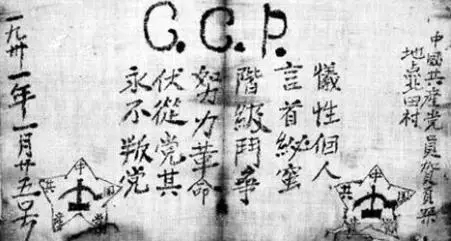 C.C.P.
中國共産党員賀頁朶
地点北田村
犠牲個人
言首秘蜜
階級鬥争
努力革命
伏從党其
永不叛党
一九卅一年一月廿五号